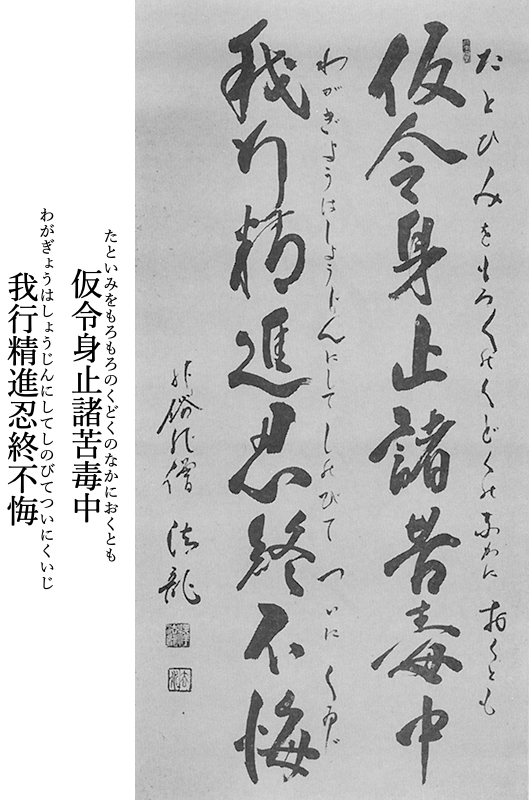 たとひみをもろくのくどくのなかにおくとも
仮令身止諸苦毒中
わがぎようはしようじんにしてしのびてついにくゐじ
我行精進忍終不悔
非俗非僧 法龍
たといみをもろもろのくどくのなかにおくとも
仮令身止諸苦毒中
わがぎょうはしょうじんにしてしのびてついにくいじ
我行精進忍終不悔